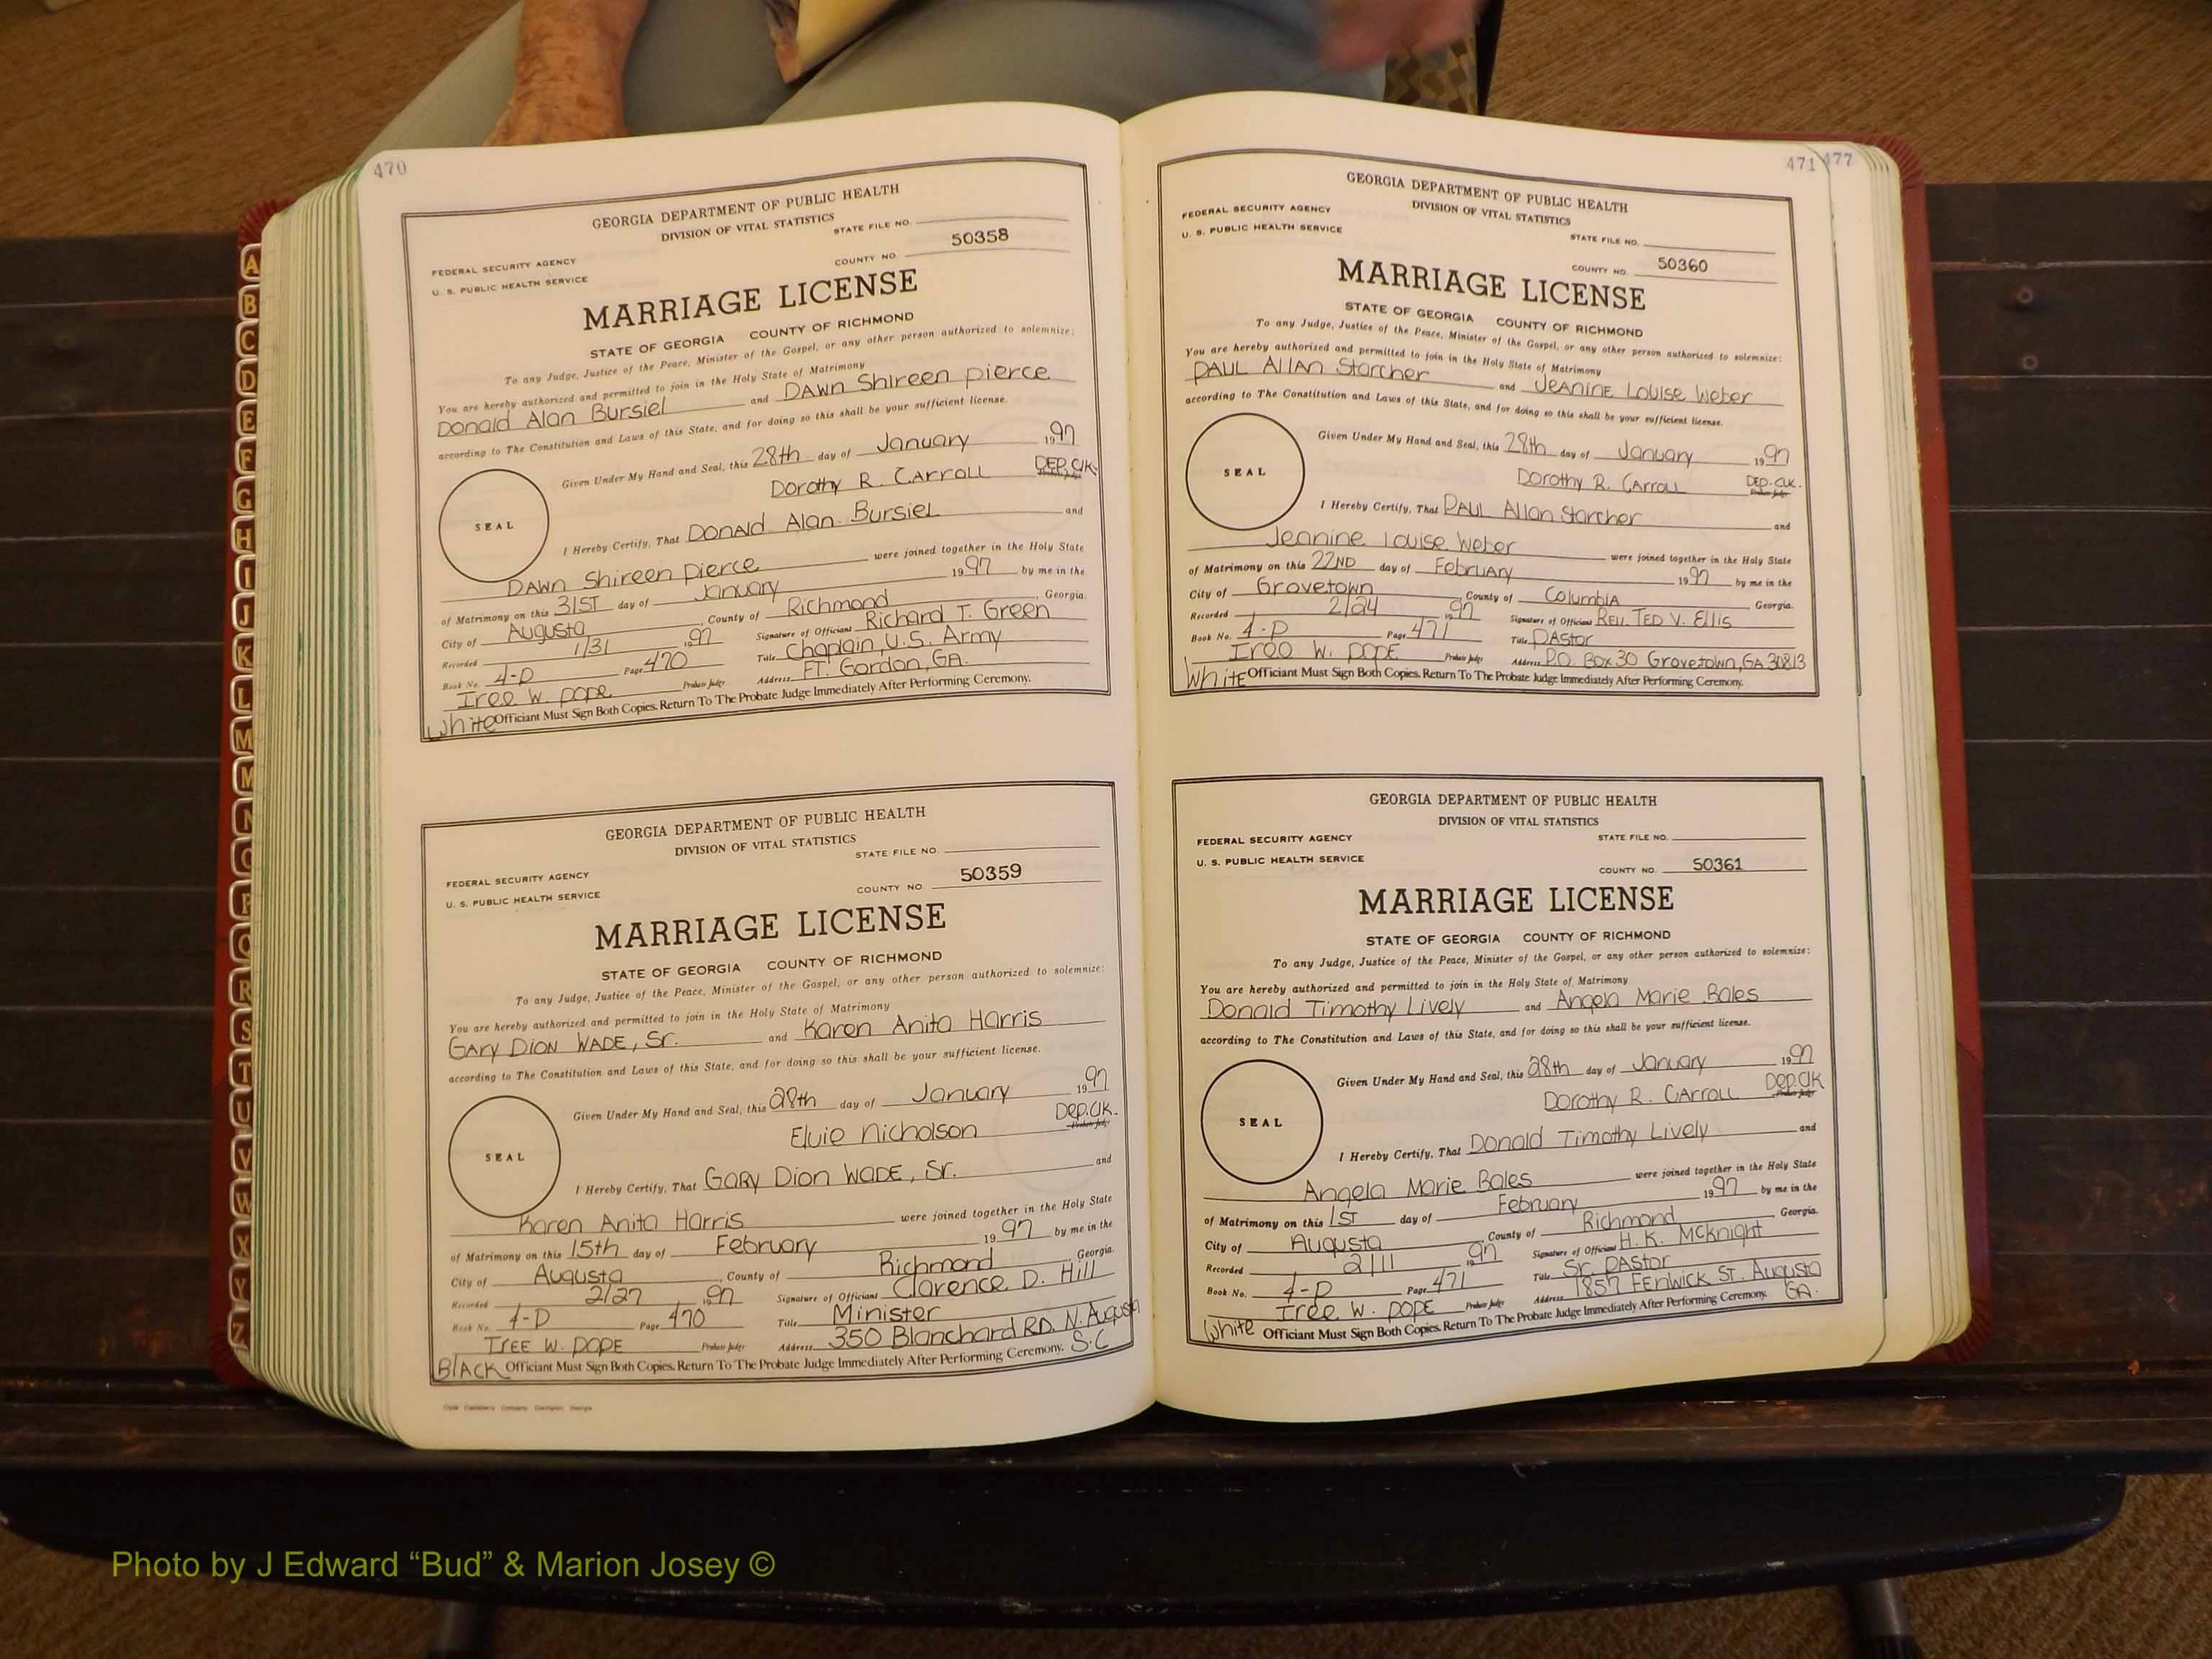 470
GEORGIA DEPARTMENT OF PUBLIC HEALTH
DIVISION OF VITAL STATISTICS
STATE FILE NO.
FEDERAL SECURITY AGENCY
U. S. PUBLIC HEALTH SERVICE
COUNTY NO. 50358
MARRIAGE LICENSE
STATE OF GEORGIA COUNTY OF RICHMOND
To any Judge, Justice of the Peace, Minister of the Gospel, or any other person authorized to solemnize:
You are hereby authorized and permitted to join in the Holy State of Matrimony
Donald Alan Bursiel and DAWN Shireen pierce
according to The Constitution and Laws of this State, and for doing so this shall be your sufficient license.
Given Under My Hand and Seal, this 28th day of January 1997
Dorothy R. CArroll DEP. Clk.
SEAL
I Hereby Certify, That Donald Alan Bursiel and
DAWN Shireen pierce were joined together in the Holy State
of Matrimony on this 31ST day of January 1997 by me in the
City of Augusta, County of Richmond, Georgia.
Recorded 1/31 1997 Signature of Officiant Richard T. Green
Book No. 4-D Page 470 Title Chaplain, U.S. Army
Iree W. pope Probate Judge Address FT. Gordon, GA.
White Officiant Must Sign Both Copies. Return To The Probate Judge Immediately After Performing Ceremony.
GEORGIA DEPARTMENT OF PUBLIC HEALTH
DIVISION OF VITAL STATISTICS
STATE FILE NO.
FEDERAL SECURITY AGENCY
U. S. PUBLIC HEALTH SERVICE
COUNTY NO. 50359
MARRIAGE LICENSE
STATE OF GEORGIA COUNTY OF RICHMOND
To any Judge, Justice of the Peace, Minister of the Gospel, or any other person authorized to solemnize:
You are hereby authorized and permitted to join in the Holy State of Matrimony
GAry DION WADE, Sr. and Karen Anita Harris
according to The Constitution and Laws of this State, and for doing so this shall be your sufficient license.
Given Under My Hand and Seal, this 28th day of January 1997
Elvie Nicholson Dep. Clk.
SEAL
I Hereby Certify, That GARy Dion WADE, Sr. and
Karen Anita Harris were joined together in the Holy State
of Matrimony on this 15th day of February 1997 by me in the
City of Augusta, County of Richmond, Georgia.
Recorded 2/27 1997 Signature of Officiant Clarence D. Hill
Book No. 4-D Page 470 Title Minister
IREE W. POPE Probate Judge Address 350 Blanchard RD. N. Augusta S.C
BlACK Officiant Must Sign Both Copies. Return To The Probate Judge Immediately After Performing Ceremony.
471 477
GEORGIA DEPARTMENT OF PUBLIC HEALTH
DIVISION OF VITAL STATISTICS
FEDERAL SECURITY AGENCY
U. S. PUBLIC HEALTH SERVICE
STATE FILE NO.
COUNTY NO. 50360
MARRIAGE LICENSE
STATE OF GEORGIA COUNTY OF RICHMOND
To any Judge, Justice of the Peace, Minister of the Gospel, or any other person authorized to solemnize:
You are hereby authorized and permitted to join in the Holy State of Matrimony
PAUL Allan Starcher and JeANINE Louise Weber
according to The Constitution and Laws of this State, and for doing so this shall be your sufficient license.
Given Under My Hand and Seal, this 28th day of January 1997
Dorothy R. CArroll DEP. CLK.
SEAL
I Hereby Certify, That PAUL Allan Starcher and
Jeannine Louise Weber were joined together in the Holy State
of Matrimony on this 22ND day of FebruAry 1997 by me in the
City of Grovetown, County of ColumbiA, Georgia.
Recorded 2/24 1997 Signature of Officiant Rev. TED V. Ellis
Book No. 4-D Page 471 Title PAstor
Iree W. pope Probate Judge Address P.O. Box 30 Grovetown, GA 30813
White Officiant Must Sign Both Copies. Return To The Probate Judge Immediately After Performing Ceremony.
GEORGIA DEPARTMENT OF PUBLIC HEALTH
DIVISION OF VITAL STATISTICS
FEDERAL SECURITY AGENCY
STATE FILE NO.
U. S. PUBLIC HEALTH SERVICE
COUNTY NO. 50361
MARRIAGE LICENSE
STATE OF GEORGIA COUNTY OF RICHMOND
To any Judge, Justice of the Peace, Minister of the Gospel, or any other person authorized to solemnize:
You are hereby authorized and permitted to join in the Holy State of Matrimony
Donald Timothy Lively and Angela Marie Bales
according to The Constitution and Laws of this State, and for doing so this shall be your sufficient license.
Given Under My Hand and Seal, this 28th day of January 1997
Dorothy R. CArroll Dep. Clk
SEAL
I Hereby Certify, That Donald Timothy Lively and
Angela Marie Bales were joined together in the Holy State
of Matrimony on this 1ST day of February 1997 by me in the
City of Augusta, County of Richmond, Georgia.
Recorded 2/11 1997 Signature of Officiant H. K. McKnight
Book No. 4-D Page 471 Title Sr. PAstor
Iree W. pope Probate Judge Address 1857 Fenwick St. Augusta GA.
White Officiant Must Sign Both Copies. Return To The Probate Judge Immediately After Performing Ceremony.
A
B
C
D
E
F
G
H
I
J
K
L
M
M
N
O
P
Q
R
S
T
U
V
W
X
Y
Z
Photo by J Edward “Bud” & Marion Josey ©